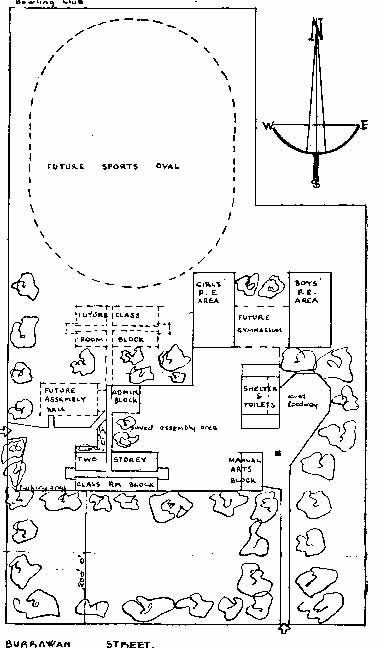 Bowling Club
N
W E
S
FUTURE SPORTS OVAL
GIRLS'
P.E
AREA
BOYS'
P.E.
AREA
FUTURE
GYMNASIUM
FUTURE CLASS
ROOM BLOCK
FUTURE
ASSEMBLY
HALL
ADMIN
BLOCK
SHELTER
&
TOILETS
roadway
paved assembly area
TWO STOREY
CLASS RM BLOCK
MANUAL
ARTS
BLOCK
200' 0"
BURRAWAN STREET.